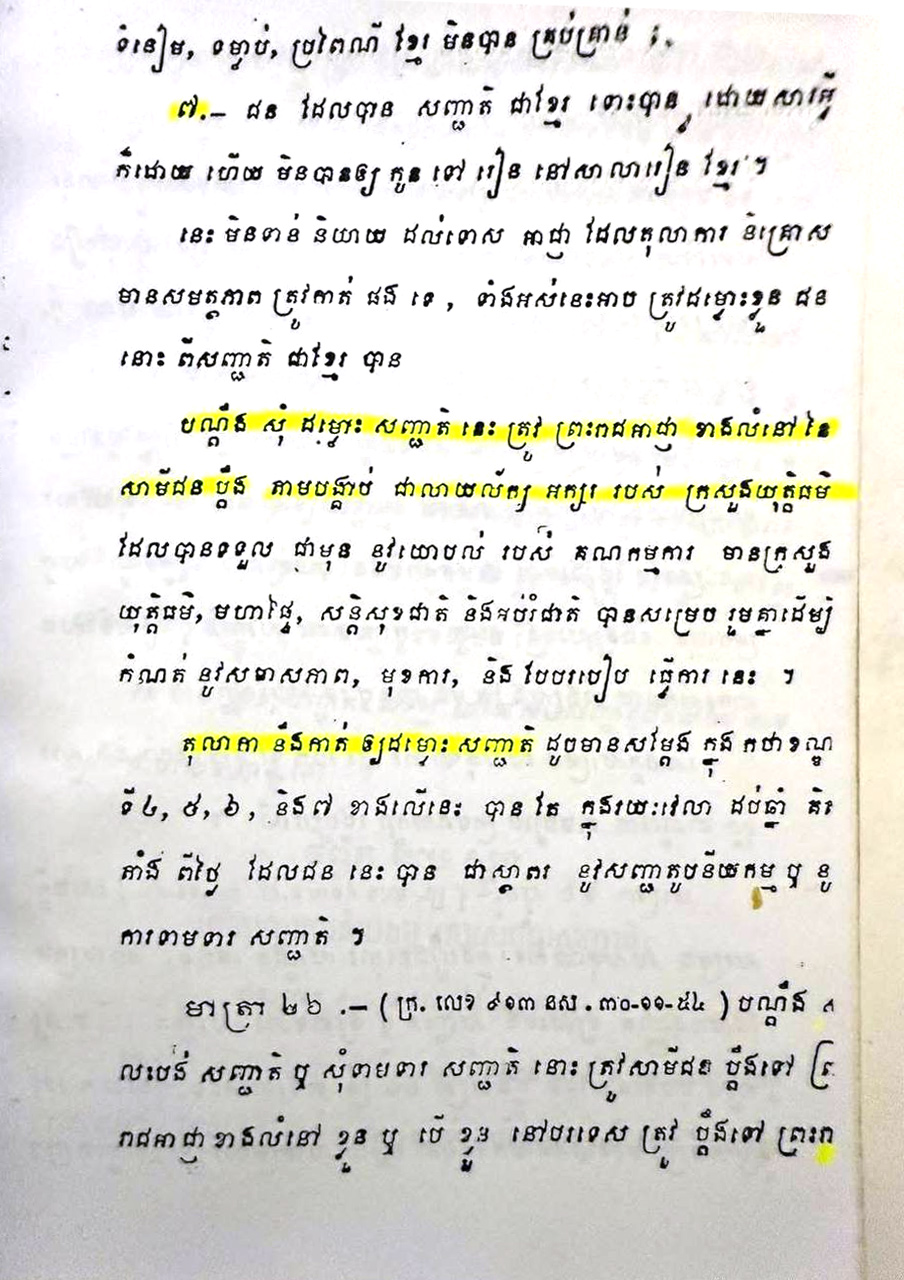 ទំនៀម, ទម្លាប់, ប្រពៃណី ខ្មែរ មិនបាន គ្រប់គ្រាន់ ;
៧.– ជន ដែលបាន សញ្ជាតិ ជាខ្មែរ ទោះបាន ដោយសារអ្វី
ក៏ដោយ ហើយ មិនបានឲ្យ កូន ទៅ រៀន នៅសាលារៀន ខ្មែរ ។
នេះ មិនទាន់ និយាយ ដល់ទោស អាជ្ញា ដែលតុលាការ
មានសមត្ថភាព ត្រូវកាត់ ផង ទេ , ទាំងអស់នេះអាច ត្រូវដម្ហោះខ្លួន ជន
នោះ ពីសញ្ជាតិ ជាខ្មែរ បាន
បណ្ដឹង សុំ ដម្ហោះ សញ្ជាតិ នេះ ត្រូវ ព្រះរាជអាជ្ញា ខាងលំនៅ នៃ
សាមីជន ប្ដឹង តាមបង្គាប់ ជាលាយល័ក្ខ អក្សរ របស់ ក្រសួងយុត្តិធម៌
ដែលបានទទួល ជាមុន នូវយោបល់ របស់ គណកម្មការ មានក្រសួង
យុត្តិធម៌, មហាផ្ទៃ, សន្តិសុខជាតិ និងអប់រំជាតិ បានសម្រេច រួមគ្នាដើម្បី
កំណត់ នូវសមាសភាព, មុខការ, និង បែបរបៀប ធ្វើការ នេះ ។
តុលាកា នឹងកាត់ ឲ្យដម្ហោះ សញ្ជាតិ ដូចមានសម្ដែង ក្នុង កថាខណ្ឌ
ទី៤, ៥, ៦, និង៧ ខាងលើនេះ បាន តែ ក្នុងរយៈវេលា ដប់ឆ្នាំ គិត
តាំង ពីថ្ងៃ ដែលជន នេះ បាន ជាស្ថាពរ នូវសញ្ជាតូបនីយកម្ម ឬ នូ
ការទាមទារ សញ្ជាតិ ។
មាត្រា ២៦ .– ( ក្រ. លេខ ៩១៣ នស . ៣០-១១-៥៤ ) បណ្ដឹង
លះបង់ សញ្ជាតិ ឬ សុំទាមទារ សញ្ជាតិ នោះ ត្រូវសាមីជន ប្ដឹងទៅ
រាជអាជ្ញា ខាងលំនៅ ខ្លួន ឬ បើ ខ្លួន នៅបរទេស ត្រូវ ប្ដឹងទៅ ព្រះរា